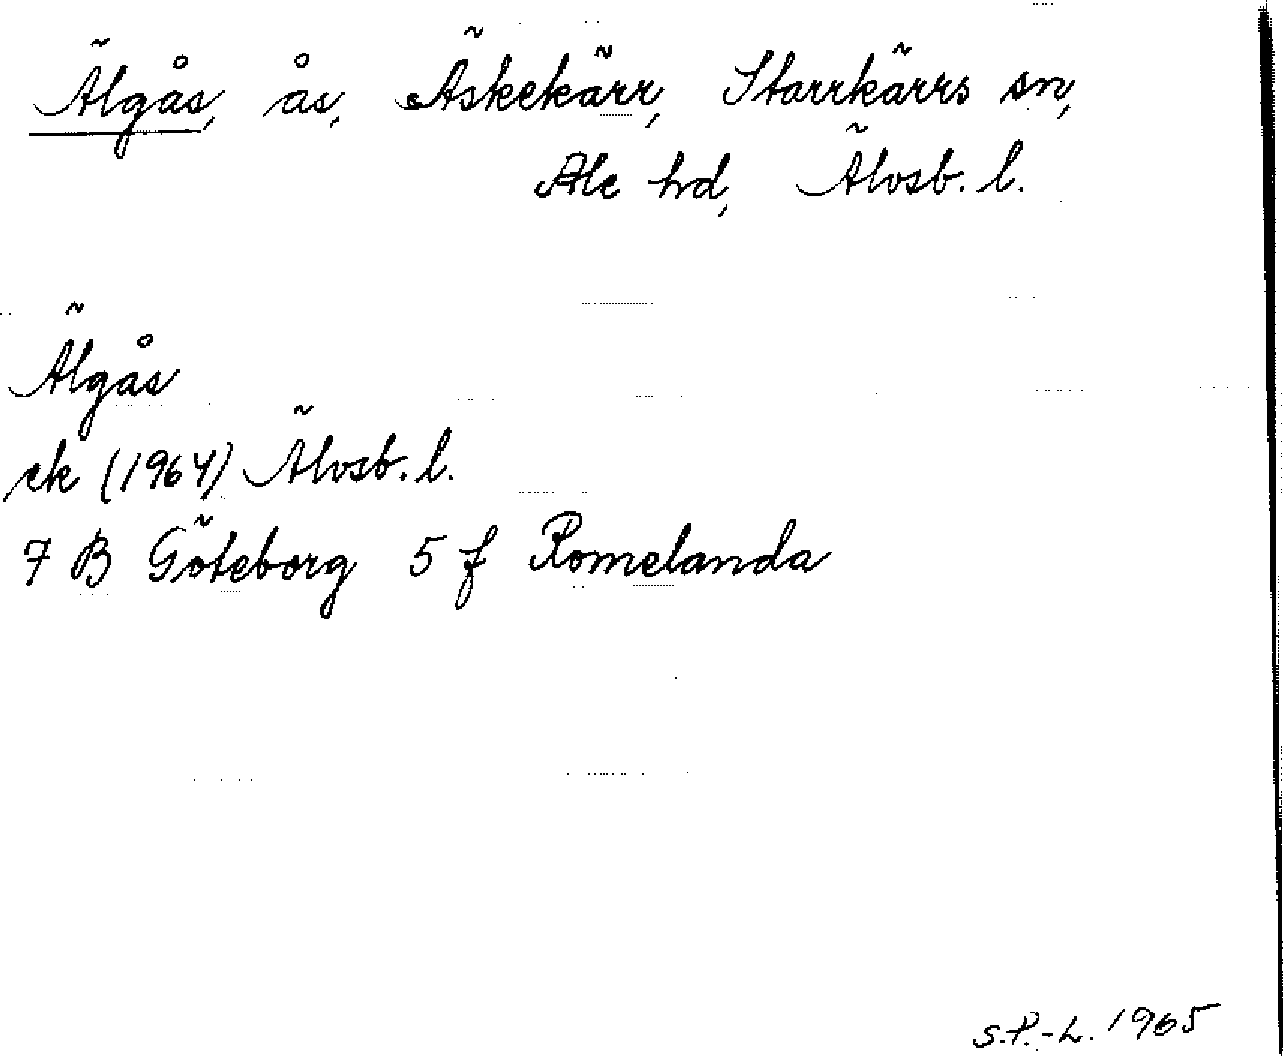 Älgås, ås, Äskekärr, Starrkärrs sn,
Ale hd, Älvsb. l.
Älgås
ek (1964) Älvsb. l.
7 B Göteborg 5 f Romelanda
S.P.-L. 1965